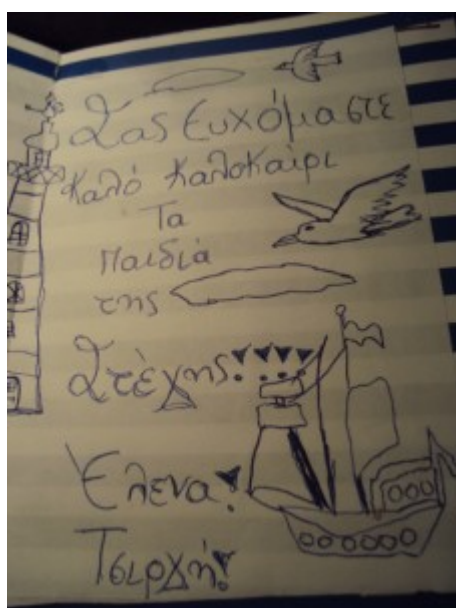 Σας Ευχόμαστε
Καλό Καλοκαίρι
Τα
Παιδιά
της
Στέχης!!!!
Έλενα!
Τσιρχή!